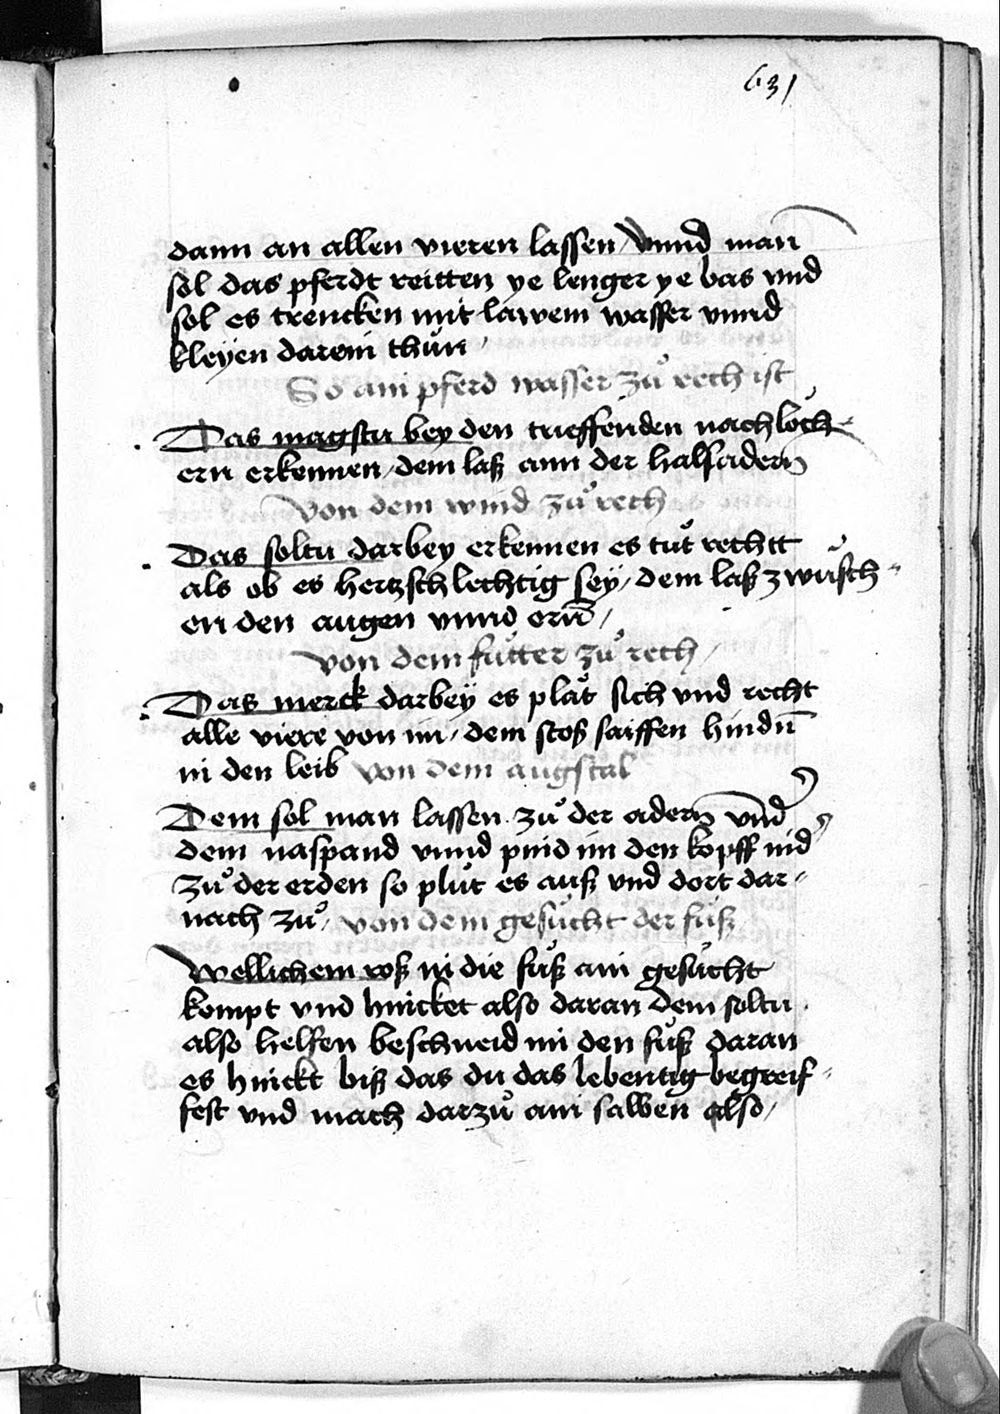 631
dann an allen vieren lassen / vnnd man
sol das pferdt reitten ye lenger ye bas vnd
sol es trencken mit lawem wasser vnnd
kleyen darein thůn /
So ain pferd wasser zů rech ist
Das magstu bey den trieffenden nachlöch-
ern erkennen / dem laß ann der halsadern
Von dem wind zů rech
Das soltu darbey erkennen es tůt rechtt
als ob es hertzschlechtig sey / dem laß zwůsch-
en den augen vnnd orn̄ /
von dem fůtter zů rech /
Das merck darbey es plåt sich vnd recht
alle viere von im / dem stoß saiffen hindn̄
in den leib von dem augstal
Dem sol man lassen zů der adern vnd
dem naspand vnnd pind im den kopff nid
zů der erden so plůt es auß vnd dort dar-
nach zů / von dem gesůcht der fůß
Wellichem roß in die fůß ain gesůcht
kompt vnd hincket also daran dem soltu
also helfen beschneid im den fůß daran
es hinckt biß das du das lebentig begreif-
fest vnd mach darzů ain salben also /